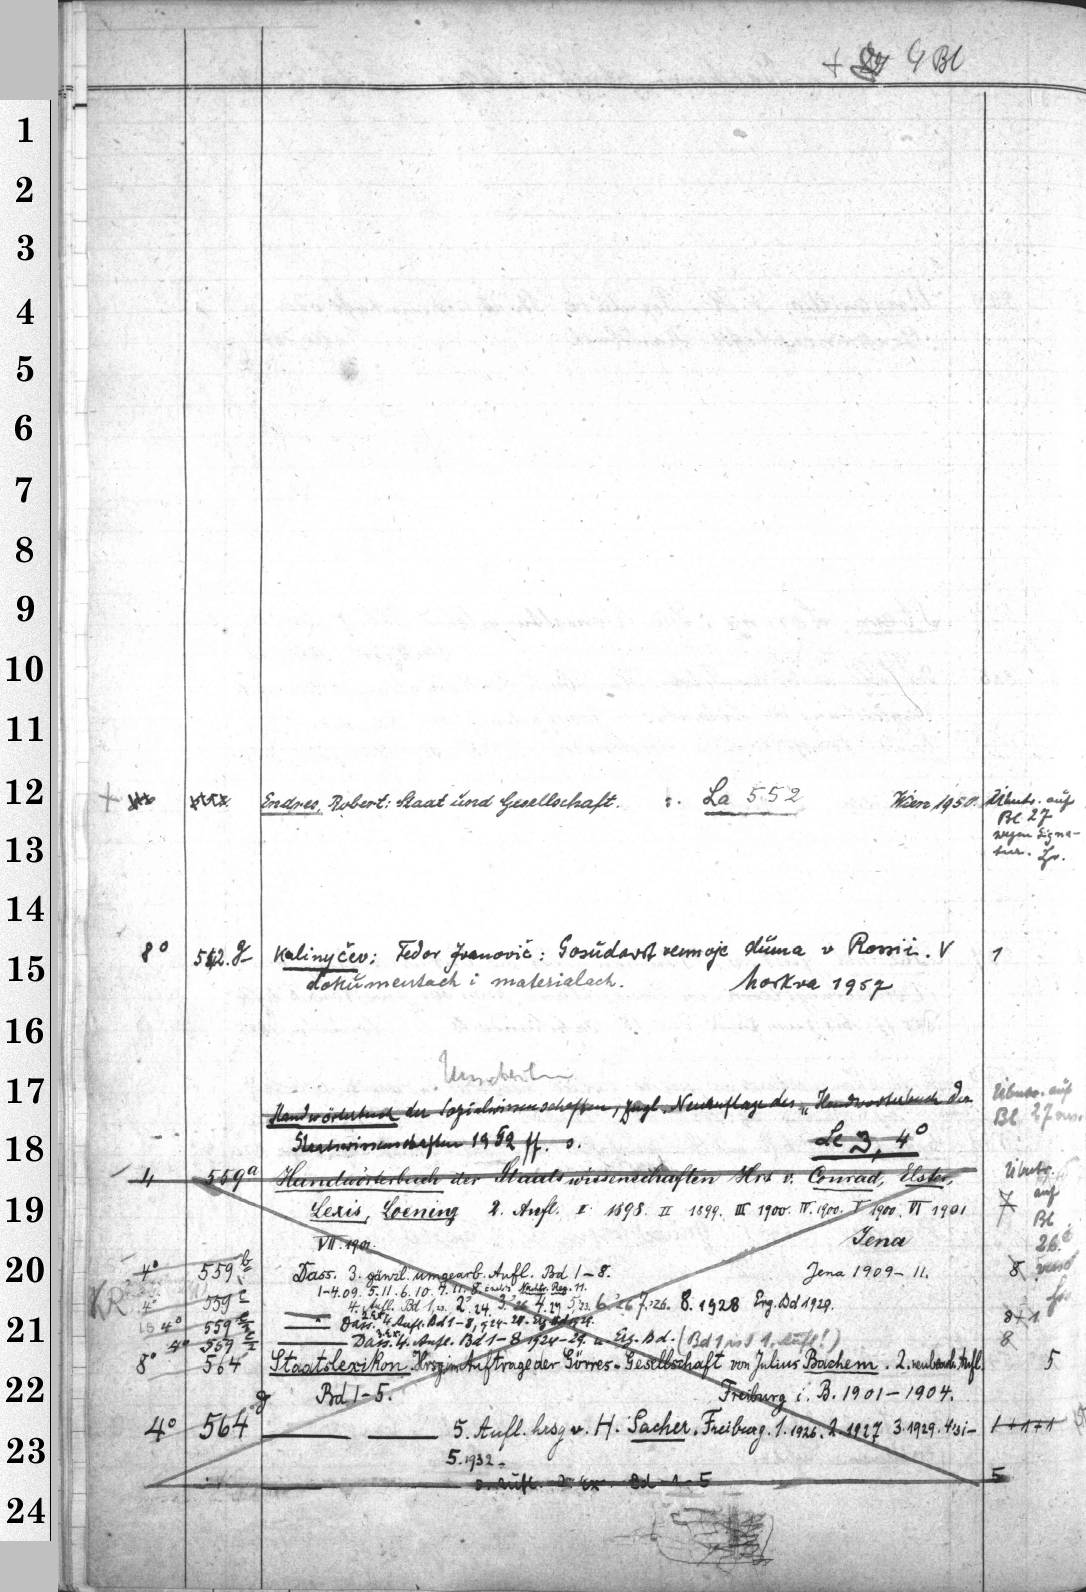 + 9 Bl
1
2
3
4
5
6
7
8
9
10
11
12
Endres, Robert: Staat und Gesellschaft. s. La 552 Wien 1950. Übertr. auf
Bl 27
wegen Signa-
tur.
13
14
8° 512.g Kalinyčev; Fedor Ivanovič: Gosudarstvennoje duma v Rossii. V 1
15
dokumentach i materialach. Moskva 1957
16
17
Übertr. auf
Handwörterbuch der Sozialwissenschaften, zugl. Neuauflage des "Handwörterbuch der Bl 27
18
Staatswissenschaften 1952 ff. s. Lc 3, 4°
4 559a Handwörterbuch der Staatswissenschaften Hrs v. Conrad, Elster, Übertr.
auf
19
Lexis, Loening 2. Aufl. I 1898. II 1899. III 1900. IV 1900. V 1900. VI 1901 7
Bl
VII 1901. Jena 26.
20
4° 559b Dass. 3. gänzl. umgearb. Aufl. Bd 1-8. Jena 1909-11. 8
1-4.09. 5.11. 6.10. 7.11. 8.
KR 4° 559c 4. Aufl. Bd 1. 2.24. 4.27 6.26 7.26. 8.1928 Erg. Bd 1929.
21
4° 559 Dass. 4. Aufl. Bd 1-8, 8+1
4° 559 Dass. 4. Aufl. Bd 1-8 1924-29. u. Erg. Bd. (Bd 1 ist 1. Aufl!) 8
8° 564 Staatslexikon. Hrsg. im Auftrage der Görres-Gesellschaft von Julius Bachem. 2. neubearb. Aufl. 5
22
Bd 1-5. Freiburg i. B. 1901-1904.
4° 564g 5. Aufl. hrsg v. H. Sacher. Freiburg. 1.1926. 2.1927 3.1929. 1+1+1
23
5.1932.
5. Aufl. 2. Ex. Bd 1-5 5
24